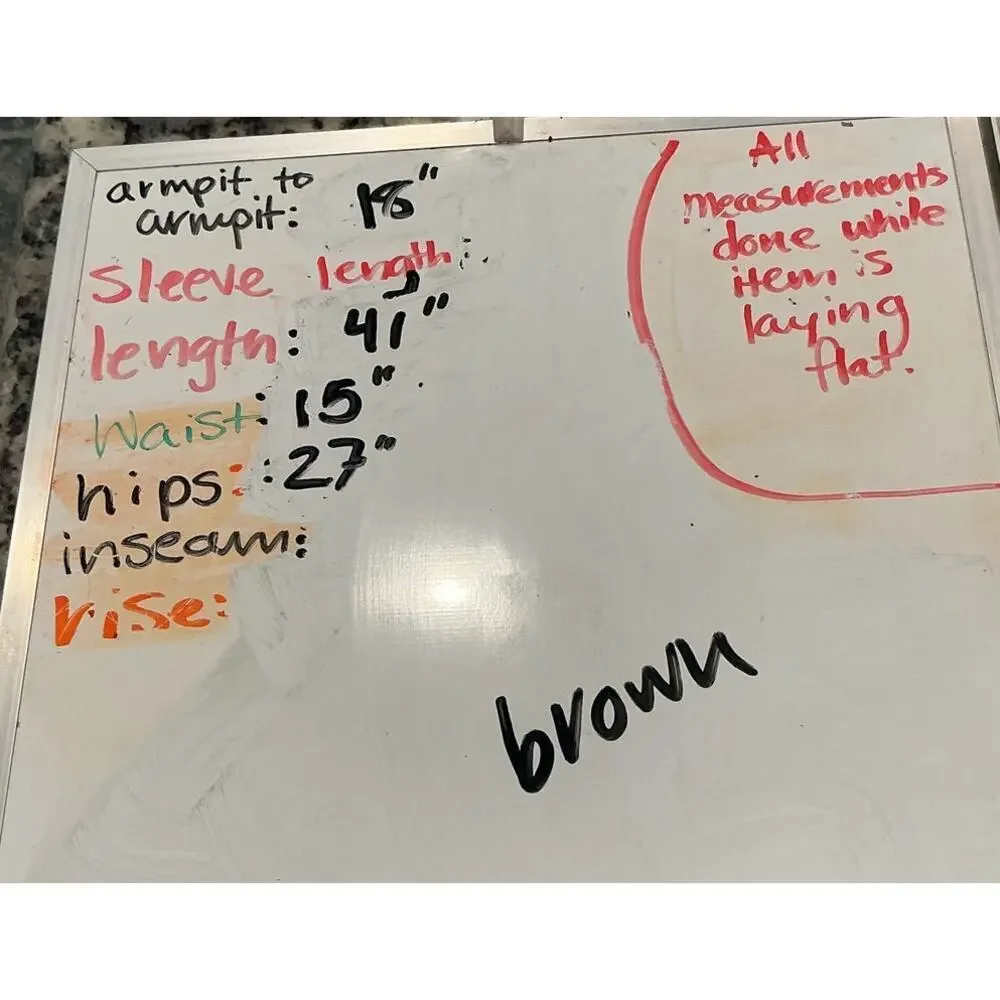 armpit to
armpit: 18"
sleeve length:
length: 41"
Waist: 15"
hips: 27"
inseam:
rise:
All
measurements
done while
item is
laying
flat.
brown